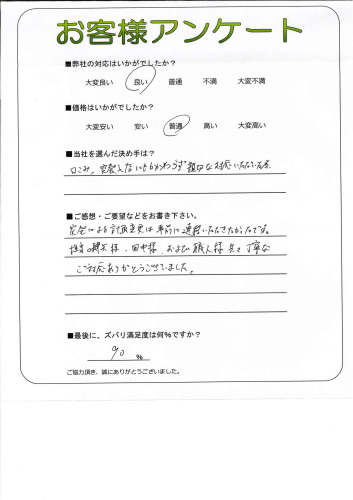 お客様アンケート
■弊社の対応はいかがでしたか?
大変良い 良い 普通 不満 大変不満
■価格はいかがでしたか?
大変安い 安い 普通 高い 大変高い
■当社を選んだ決め手は?
口コミ、 にもかかわらず 親切な対応いただいた点
■ご感想・ご要望などをお書き下さい。
による計画変更は事前に連絡いただきたかったです。
担当の 様、田中様、および職人様 共々 丁寧な
ご対応ありがとうございました。
■最後に、ズバリ満足度は何%ですか?
90 %
ご協力頂き、誠にありがとうございました。